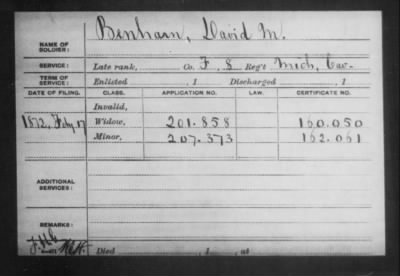 NAME OF SOLDIER: Benham, David M.
SERVICE: Late rank, Co. F, 8 Reg't Mich, Cav.
TERM OF SERVICE: Enlisted , 1 Discharged , 1
DATE OF FILING. CLASS. APPLICATION NO. LAW. CERTIFICATE NO.
Invalid,
1872, Feby 17 Widow, 201.858 160.050
Minor, 207.373 162.061
ADDITIONAL SERVICES:
REMARKS:
Died , 1 , at